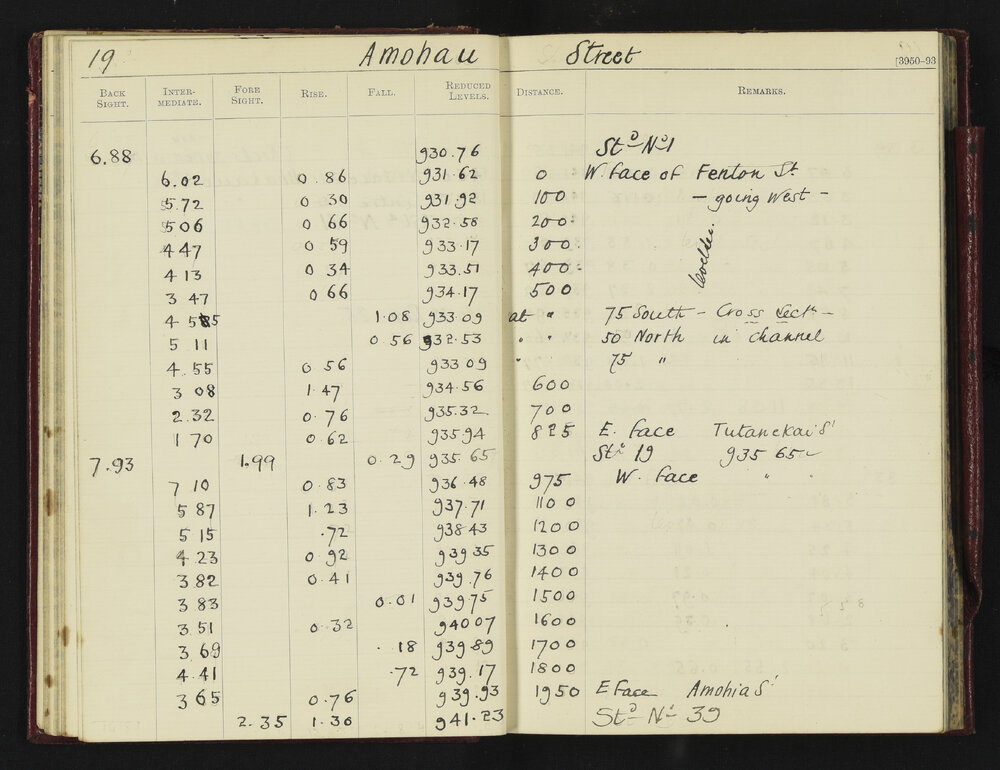 19 Amohau Street [3950-93
BACK SIGHT. INTER-MEDIATE. FORE SIGHT. RISE. FALL. REDUCED LEVELS. DISTANCE. REMARKS.
6.88 930.76 Std No 1
6.02 0.86 931.62 0 W Face of Fenton St
5.72 0.30 931.92 100 - going West -
5 06 0 66 932.58 200
4 47 0 59 933.17 300
4 13 0 34 933.51 400
3 47 0 66 934.17 500
4 55 1.08 933.09 at " 75 South - Cross Sectn -
5 11 0 56 932.53 " " 50 North in channel
4.55 0 56 933 09 " 75 "
3 08 1.47 934.56 600
2.32 0.76 935.32 700
1 70 0.62 935.94 825 E. face Tutanekai St
7.93 1.99 0.29 935.65 Std 19 935 65
7 10 0.83 936.48 975 W. face " "
5 87 1.23 937.71 1100
5 15 .72 938 43 1200
4.23 0 92 939 35 1300
3 82 0.41 939.76 1400
3 83 0.01 939.75 1500
3.51 0.32 940 07 1600
3 69 . 18 939.89 1700
4.41 .72 939.17 1800
3 65 0.76 939.93 1950 E Face Amohia St
2.35 1.30 941.23 Std No 39